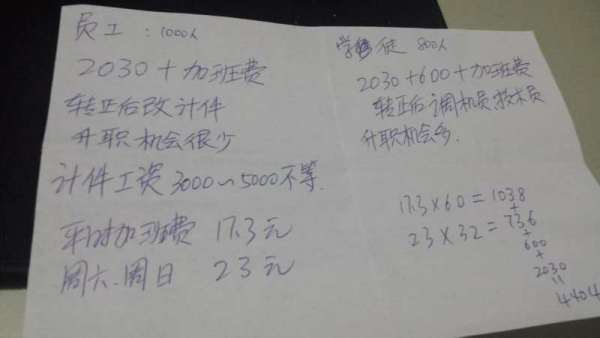 员工：1000人
2030+加班费
转正后改计件
升职机会很少
计件工资 3000~5000不等.
平时加班费 17.3元
周六.周日 23元
学徒 800人
2030+600+加班费
转正后调机员.技术员
升职机会多.
17.3×60=1038
+
23×32=736
+
600
+
2030
=
4404